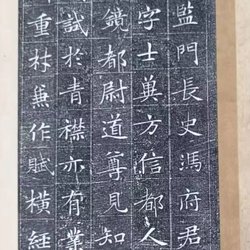 監門長史馮府君
字士兾方信都人
鏡都尉道尊見知
試於青襟亦有業
重村兼作賦橫經